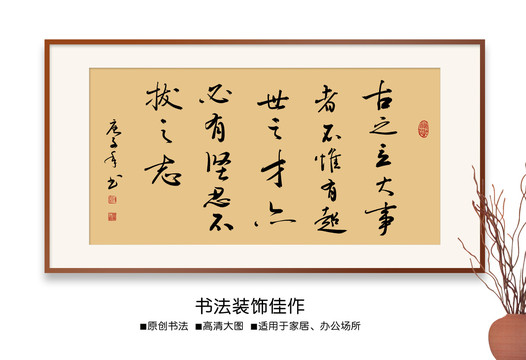 古之立大事
者不惟有超
世之才亦
必有坚忍不
拔之志
庚子年书
书法装饰佳作
■原创书法 ■高清大图 ■适用于家居、办公场所